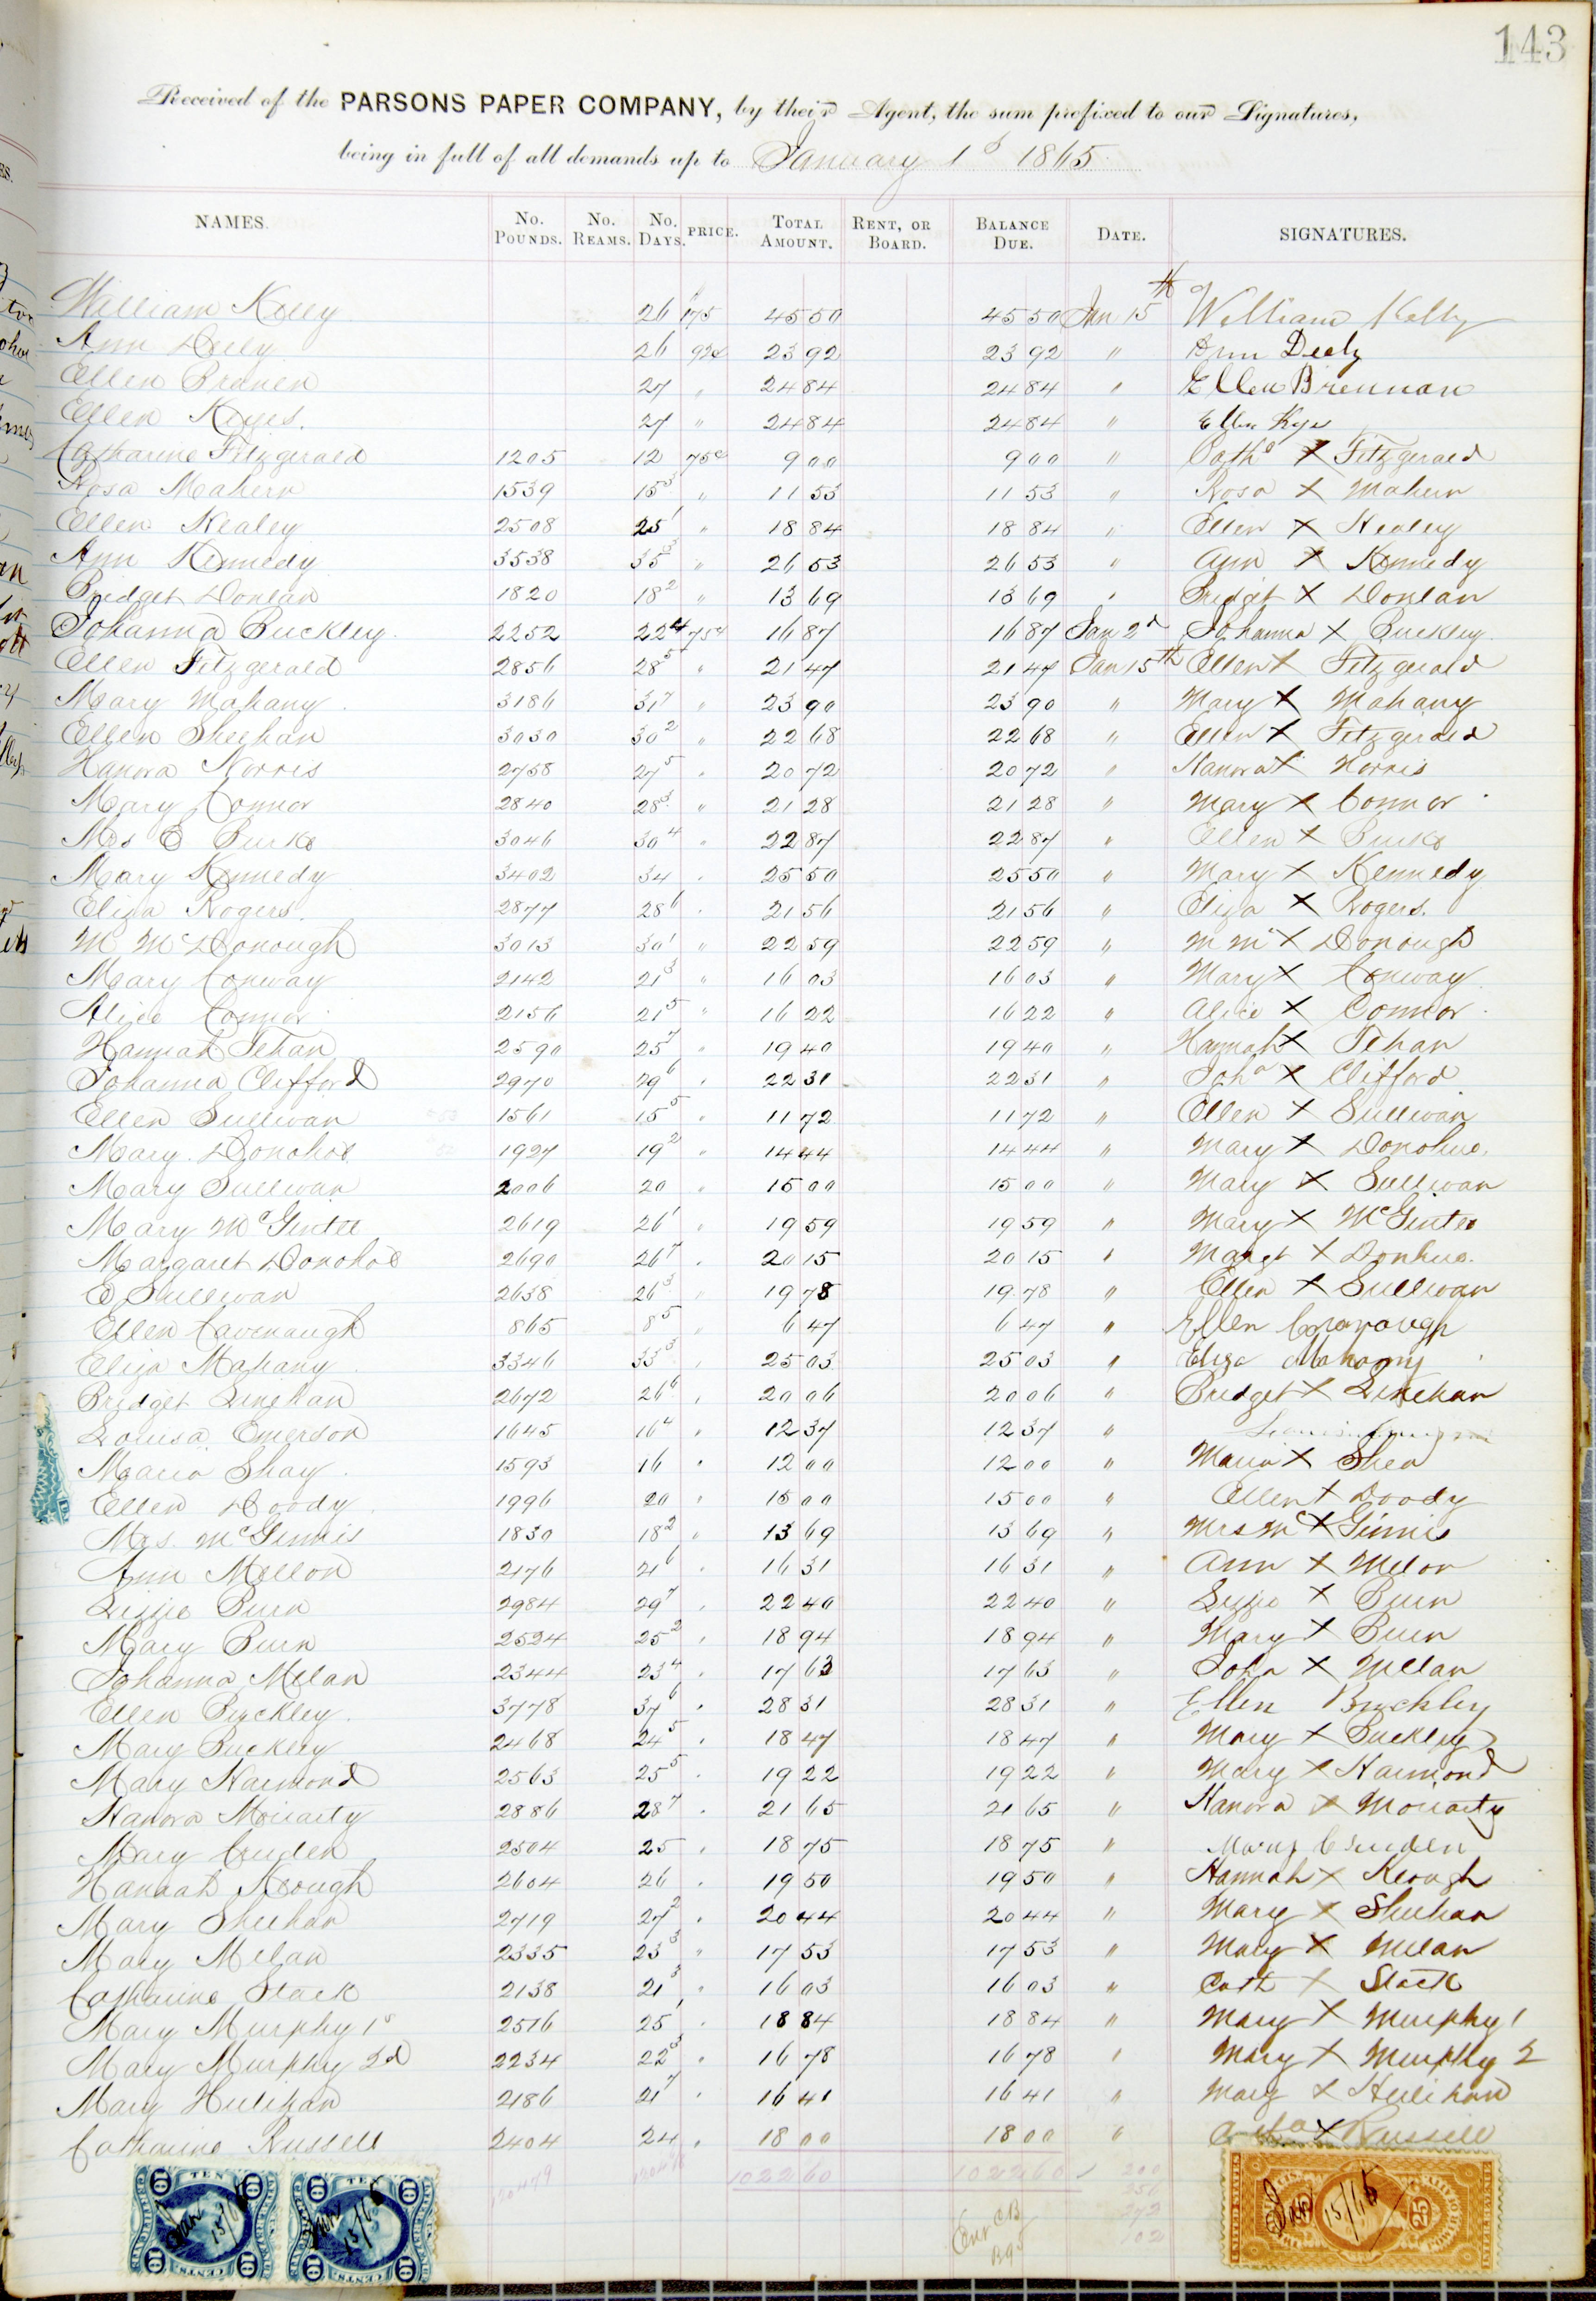 143
Received of the PARSONS PAPER COMPANY, by their Agent, the sum prefixed to our Signatures,
being in full of all demands up to January 1st 1865
NAMES. No. POUNDS. No. REAMS. No. DAYS. PRICE. TOTAL AMOUNT. RENT, OR BOARD. BALANCE DUE. DATE. SIGNATURES.
William Kelly 26 175 45 50 45 50 Jan 15th William Kelly
Ann Deely 26 92c 23 92 23 92 " Ann Deely
Ellen Branen 27 " 24 84 24 84 " Ellen Brennan
Ellen Keyes. 27 " 24 84 24 84 " Ellen Kyes
Catharine Fitzgerald 1205 12 75c 9 00 9 00 " Cath X Fitzgerald
Rosa Mahern 1539 15 3 " 11 53 11 53 " Rosa X Mahern
Ellen Healey 2508 25 1 " 18 84 18 84 " Ellen X Healey
Ann Kennedy 3538 35 3 " 26 53 26 53 " Ann X Kennedy
Bridget Donlan 1820 18 2 " 13 69 13 69 " Bridget X Donlan
Johanna Buckley. 2252 22 4 75c 16 87 16 87 Jan 2d Johanna X Buckley.
Ellen Fitzgerald 2856 28 5 " 21 47 21 47 Jan 15th Ellen X Fitzgerald
Mary Mahany. 3186 31 7 " 23 90 23 90 " Mary X Mahany
Ellen Sheehan 3030 30 2 " 22 68 22 68 " Ellen X Fitzgerald
Hanora Norris 2758 27 5 " 20 72 20 72 " Hanora X Norris
Mary Connor 2840 28 3 " 21 28 21 28 " Mary X Connor
Mrs E Burke 3046 30 4 " 22 87 22 87 " Ellen X Burke
Mary Kennedy 3402 34 " 25 50 25 50 " Mary X Kennedy
Eliza Rogers. 2877 28 6 " 21 56 21 56 " Eliza X Rogers.
M McDonough 3013 30 1 " 22 59 22 59 " M Mc X Donough
Mary Conway 2142 21 3 " 16 03 16 03 " Mary X Conway
Alice Connor 2156 21 5 " 16 22 16 22 " Alice X Connor
Hannah Tehan 2590 25 7 " 19 40 19 40 " Hannah X Tehan
Johanna Clifford 2970 29 6 " 22 31 22 31 " Joha X Clifford
Ellen Sullivan 1561 15 5 " 11 72 11 72 " Ellen X Sullivan
Mary Donohoe 1927 19 2 " 14 44 14 44 " Mary X Donohue.
Mary Sullivan 2006 20 " 15 00 15 00 " Mary X Sullivan
Mary McGintee 2619 26 1 " 19 59 19 59 " Mary X McGintee
Margaret Donohoe 2690 26 7 " 20 15 20 15 " Margt X Donhue.
E Sullivan 2638 26 3 " 19 78 19 78 " Ellen X Sullivan
Ellen Cavenaugh 865 8 5 " 6 47 6 47 " Ellen
Eliza Mahany. 3346 33 3 " 25 03 25 03 " Eliza Mahany
Bridget Linehan 2672 26 6 " 20 06 20 06 " Bridget X Linehan
Louisa Emerson 1645 16 4 " 12 37 12 37 "
Maria Shay. 1593 16 " 12 00 12 00 " Maria X Shea
Ellen Doody. 1996 20 " 15 00 15 00 " Ellen X Doody
Mrs. McGinnis 1830 18 2 " 13 69 13 69 " Mrs Mc X Ginnis
Ann Mellon 2176 21 6 " 16 31 16 31 " Ann X Melon
Lizzie Burn 2984 29 7 " 22 40 22 40 " Lizzie X Burn
Mary Burn 2524 25 2 " 18 94 18 94 " Mary X Burn
Johanna Milan 2344 23 4 " 17 63 17 63 " Joha X Milan
Ellen Buckley. 3778 37 6 " 28 31 28 31 " Ellen Buckley
Mary Buckley 2468 24 5 " 18 47 18 47 " Mary X Buckley
Mary Harmond 2563 25 5 " 19 22 19 22 " Mary X Harmond
Hanora Moriarty 2886 28 7 " 21 65 21 65 " Hanora X Moriarty
Mary Cruden 2504 25 " 18 75 18 75 " Mary Cruden
Hannah Keough 2604 26 " 19 50 19 50 " Hannah X Keough
Mary Sheehan 2719 27 2 " 20 44 20 44 " Mary X Sheehan
Mary Milan 2335 23 3 " 17 53 17 53 " Mary X Milan
Catharine Stack 2138 21 3 " 16 03 16 03 " Cath X Stack
Mary Murphy 1s 2516 25 1 " 18 84 18 84 " Mary X Murphy 1
Mary Murphy 2d 2234 22 3 " 16 78 16 78 " Mary X Murphy 2
Mary Hulihan 2186 21 7 " 16 41 16 41 " Mary X Hulihan
Catharine Russell 2404 24 " 18 00 18 00 " Catha X Russell
1022 60 1022 60
TEN CENTS 10 Jan 15/65
TEN CENTS 10 Jan 15/65
25 Jan 15/65